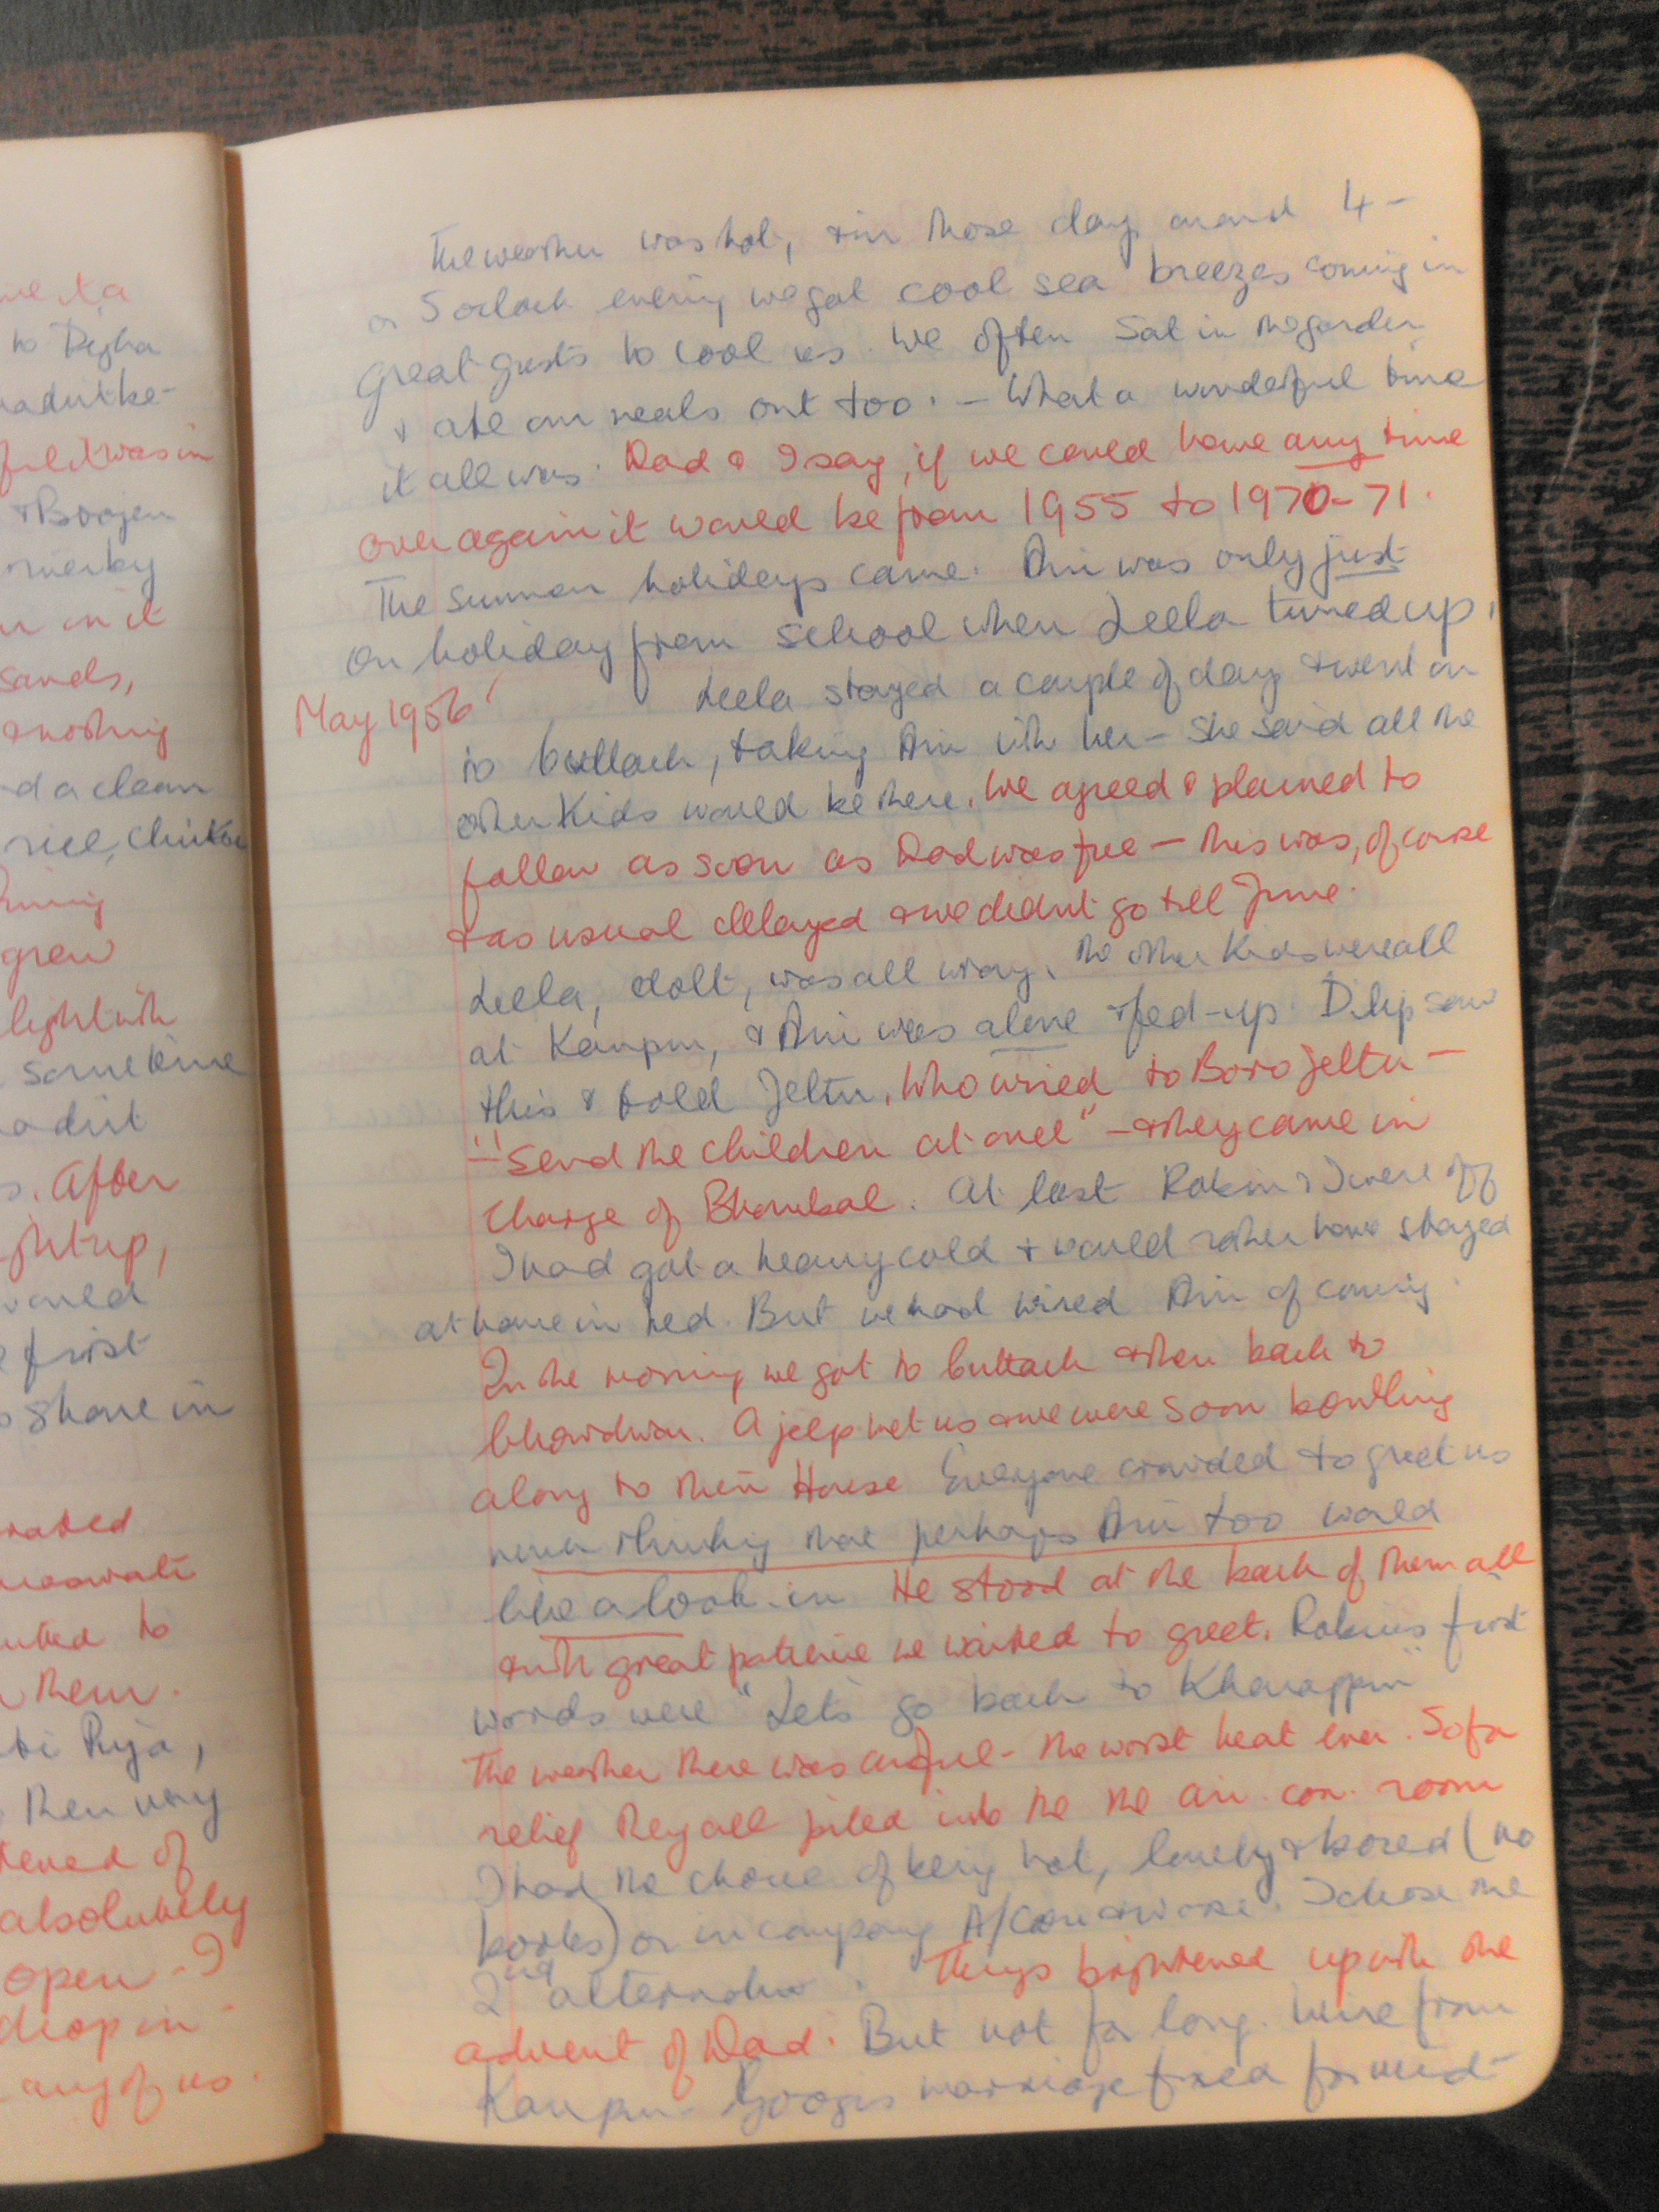 me & a
to Digha
field was in
& Boojen
in it
sands,
& nothing
d a clean
rice, chicken
grew
light with
sometime
s. After
light up,
would
first
share in
to
them.
Puja,
then very
of
absolutely
open - I
drop in
any of us.
The weather was hot, & in those days around 4 -
or 5 oclock evening we got cool sea breezes coming in
great gusts to cool us. We often sat in the garden
& ate our meals out too. - What a wonderful time
it all was. Dad & I say, if we could have any time
over again it would be from 1955 to 1970-71.
The summer holidays came. Ani was only just
on holiday from school when Leela turned up.
May 1956
Leela stayed a couple of days & went on
to Cuttack, taking Ani with her - she said all the
other kids would be there. We agreed & planned to
follow as soon as Dad was free - this was, of course
& as usual delayed & we didnt go till June.
Leela, dolt, was all wrong, the other kids were all
at Kanpur, & Ani was alone & fed-up. Dilip saw
this & told Jeltu. Who wired to Boro Jeltu -
"Send the children at once" - & they came in
charge of. At last Robin & I were off
I had got a heavy cold & would rather have stayed
at home in bed. But we had wired Ani of coming.
In the morning we got to Cuttack & then back to
A jeep met us & we were soon bowling
along to their House Everyone crowded to greet us
never thinking that perhaps Ani too would
like a look-in He stood at the back of them all
& with great patience we waited to greet. Robins first
words were "Let's go back to Kharagpur"
The weather there was awful - the worst heat ever. So for
relief they all piled into the the air. con. room
I had the choice of being hot, lonely & bored (no
books) or in company A/Con & worse. I chose the
2nd alternative. Things brightened up with the
advent of Dad. But not for long. Wire from
Kanpur - marriage fixed for mid-